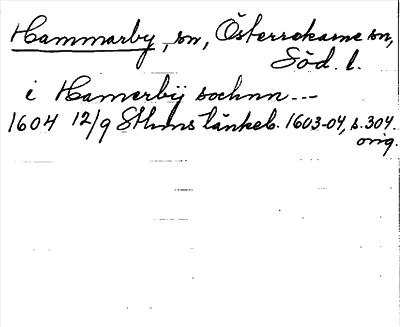 Hammarby, sn, Österrekarne sn,
Söd. l.
i Hamerbÿ sochnn ---
1604 12/9 Sthms tänkeb. 1603-04, s. 304.
orig.